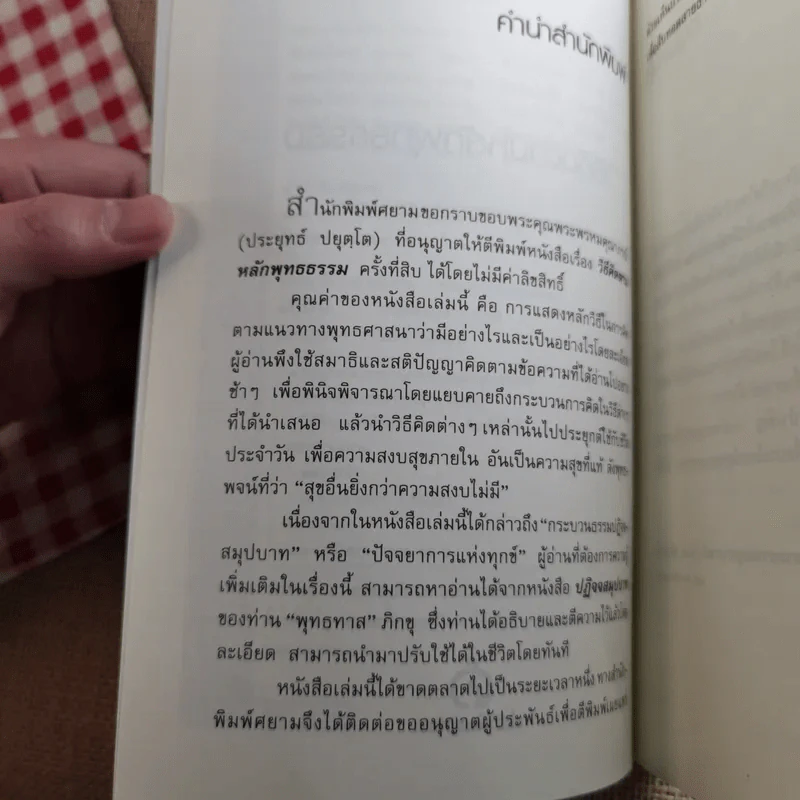 คำนำสำนักพิมพ์
สำนักพิมพ์ศยามขอกราบขอบพระคุณพระพรหมคุณาภรณ์
(ประยุทธ์ ปยุตฺโต) ที่อนุญาตให้ตีพิมพ์หนังสือเรื่อง วิธีคิดตาม
หลักพุทธธรรม ครั้งที่สิบ ได้โดยไม่มีค่าลิขสิทธิ์
คุณค่าของหนังสือเล่มนี้ คือ การแสดงหลักวิธีในการคิด
ตามแนวทางพุทธศาสนาว่ามีอย่างไรและเป็นอย่างไรโดยละเอียด
ผู้อ่านพึงใช้สมาธิและสติปัญญาคิดตามข้อความที่ได้อ่านไปอย่าง
ช้าๆ เพื่อพินิจพิจารณาโดยแยบคายถึงกระบวนการคิดในวิธีต่างๆ
ที่ได้นำเสนอ แล้วนำวิธีคิดต่างๆ เหล่านั้นไปประยุกต์ใช้กับชีวิต
ประจำวัน เพื่อความสงบสุขภายใน อันเป็นความสุขที่แท้ ดังพุทธ-
พจน์ที่ว่า “สุขอื่นยิ่งกว่าความสงบไม่มี”
เนื่องจากในหนังสือเล่มนี้ได้กล่าวถึง “กระบวนธรรมปฏิจจ-
สมุปบาท” หรือ “ปัจจยาการแห่งทุกข์” ผู้อ่านที่ต้องการความรู้
เพิ่มเติมในเรื่องนี้ สามารถหาอ่านได้จากหนังสือ ปฏิจจสมุปบาท
ของท่าน “พุทธทาส” ภิกขุ ซึ่งท่านได้อธิบายและตีความไว้แล้วโดย
ละเอียด สามารถนำมาปรับใช้ได้ในชีวิตโดยทันที
หนังสือเล่มนี้ได้ขาดตลาดไปเป็นระยะเวลาหนึ่ง ทางสำนัก-
พิมพ์ศยามจึงได้ติดต่อขออนุญาตผู้ประพันธ์เพื่อตีพิมพ์เผยแพร่